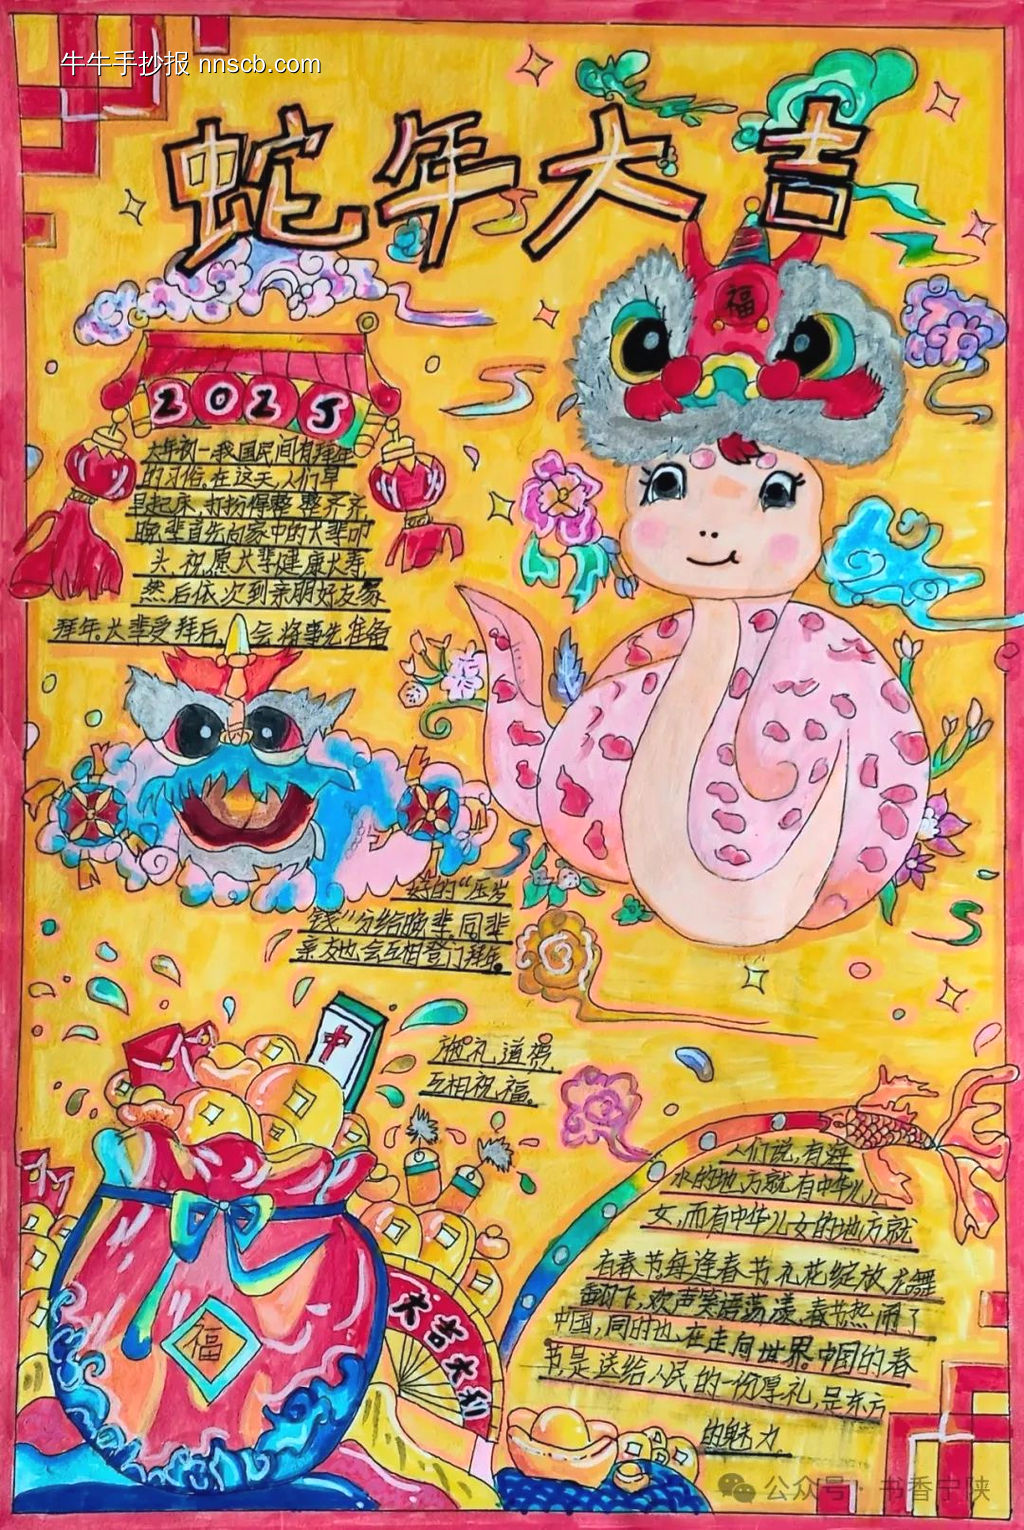 牛牛手抄报 nnscb.com
蛇年大吉
福
2025
大年初一我国民间有拜年
的习俗。在这天,人们早
早起床,打扮得整整齐齐
晚辈首先向家中的长辈叩
头,祝愿长辈健康长寿,
然后依次到亲朋好友家
拜年。长辈受拜后,会将事先准备
好的“压岁
钱”分给晚辈,同辈
亲友也会互相登门拜年。
施礼道贺,
互相祝福。
中
福
大吉大利
人们说,有海
水的地方就有中华儿
女,而有中华儿女的地方就
有春节,每逢春节礼花绽放龙舞
翻飞,欢声笑语荡漾,春节热闹了
中国,同时也在走向世界。中国的春
节,是送给人民的一份厚礼,是东方
的魅力。
公众号·书香宁陕